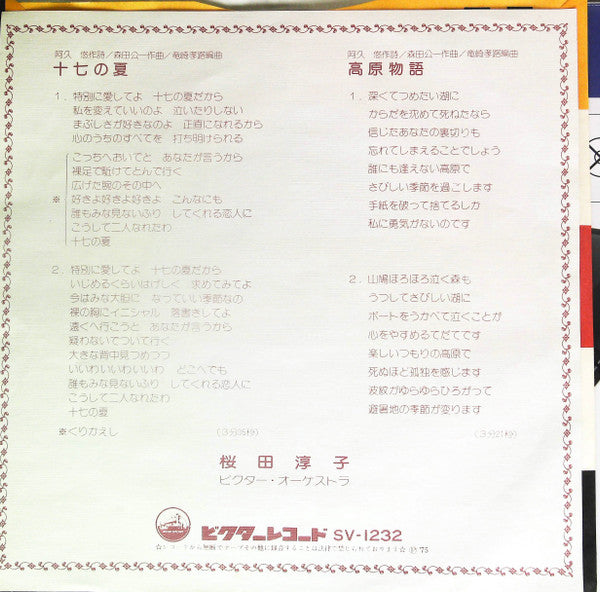 阿久 悠作詩／森田公一作曲／竜崎孝路編曲
十七の夏
1. 特別に愛してよ 十七の夏だから
私を変えていいのよ 泣いたりしない
まぶしさが好きなのよ 正直になれるから
心のうちのすべてを 打ち明けられる
こっちへおいでと あなたが言うから
裸足で駈けてとんで行く
広げた腕のその中へ
※ 好きよ好きよ好きよ こんなにも
誰もみな見ないふり してくれる恋人に
こうして二人なれたわ
十七の夏
2. 特別に愛してよ 十七の夏だから
いじめるくらいはげしく 求めてみてよ
今はみな大胆に なっていい季節なの
裸の胸にイニシャル 落書きしてよ
遠くへ行こうと あなたが言うから
疑わないでついて行く
大きな背中見つめつつ
いいわいいわいいわ どこへでも
誰もみな見ないふり してくれる恋人に
こうして二人なれたわ
十七の夏
※くりかえし (3分05秒)
阿久 悠作詩／森田公一作曲／竜崎孝路編曲
高原物語
1. 深くてつめたい湖に
からだを沈めて死ねたなら
信じたあなたの裏切りも
忘れてしまえることでしょう
誰にも逢えない高原で
さびしい季節を過ごします
手紙を破って捨てるしか
私に勇気がないのです
2. 山鳩ほろほろ泣く森も
うつしてさびしい湖に
ボートをうかべて泣くことが
心をやすめるてだてです
楽しいつもりの高原で
死ぬほど孤独を感じます
波紋がゆらゆらひろがって
避暑地の季節が変ります
(3分21秒)
桜田淳子
ビクター・オーケストラ
ビクターレコード SV-1232
☆レコードから無断でテープその他に録音することは法律で禁じられております☆ Ⓟ75